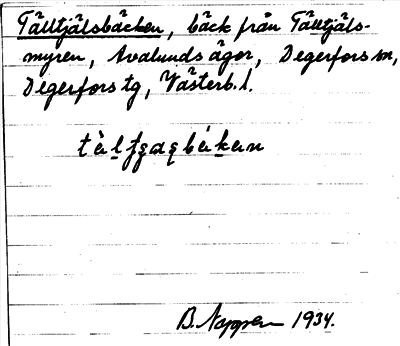 Tälltjälsbäcken, bäck från Tälltjäls-
myren, Avalunds ägor, Degerfors sn,
Degerfors tg, Västerb. l.
1934.